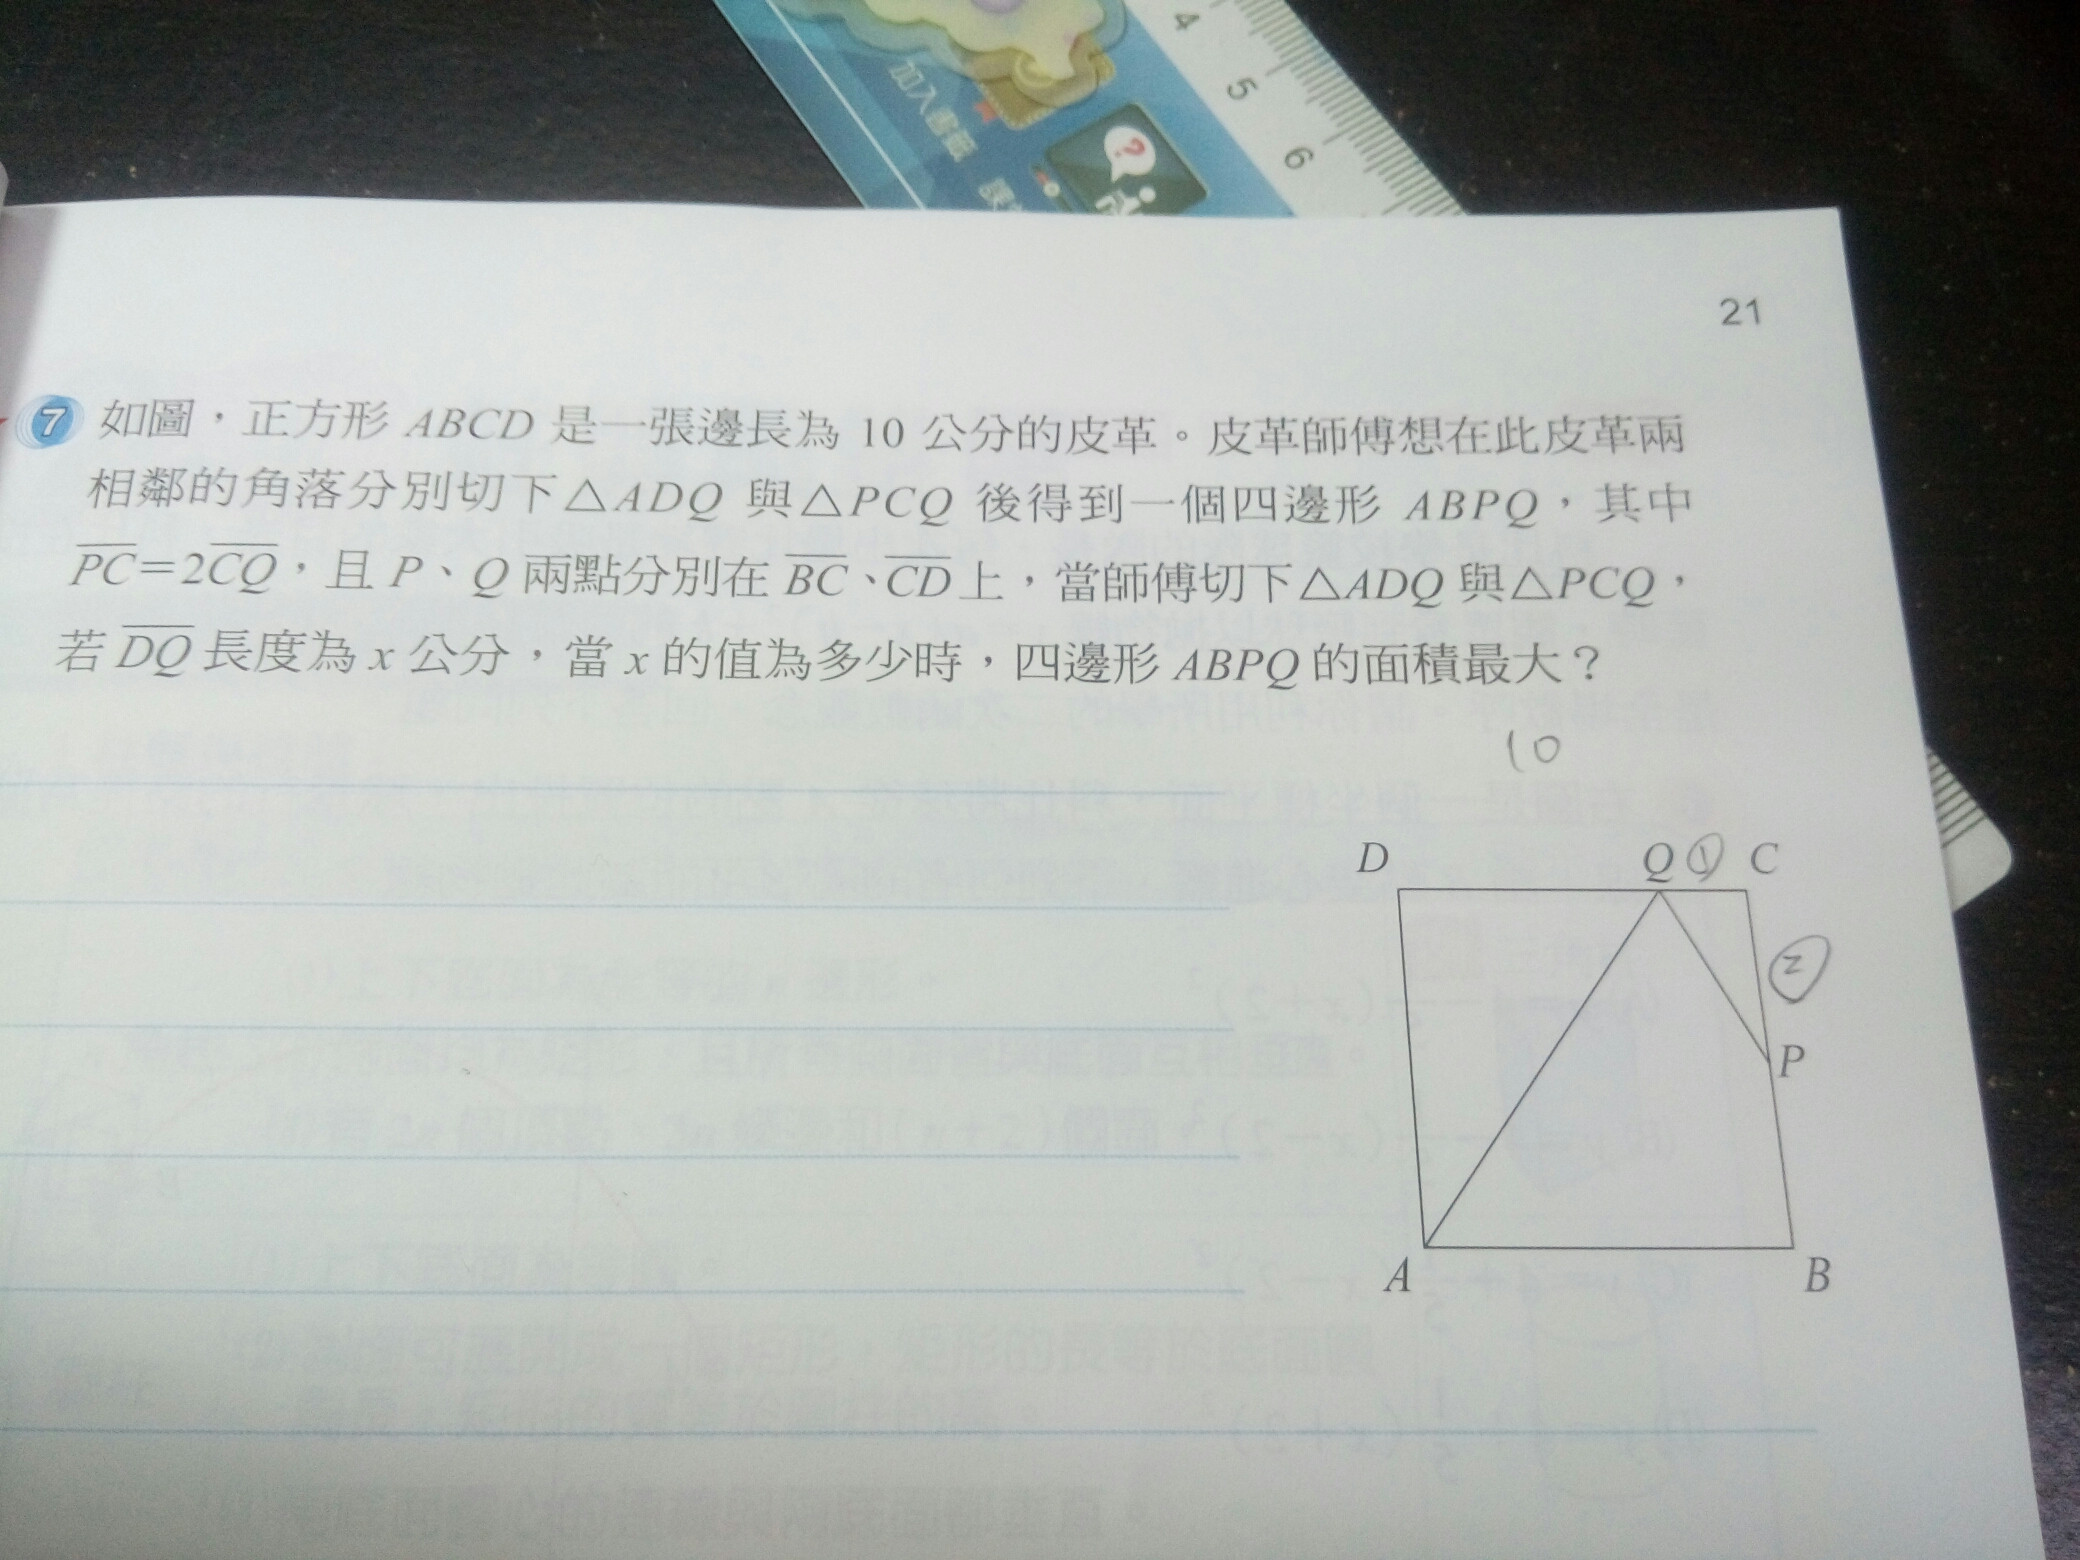 4
5
6
加入書籤
?
21
7 如圖，正方形 ABCD 是一張邊長為 10 公分的皮革。皮革師傅想在此皮革兩
相鄰的角落分別切下△ADQ 與△PCQ 後得到一個四邊形 ABPQ，其中
PC=2CQ，且 P、Q 兩點分別在 BC、CD上，當師傅切下△ADQ 與△PCQ，
若 DQ 長度為 x 公分，當 x 的值為多少時，四邊形 ABPQ 的面積最大？
10
D Q 1 C
2
P
A B